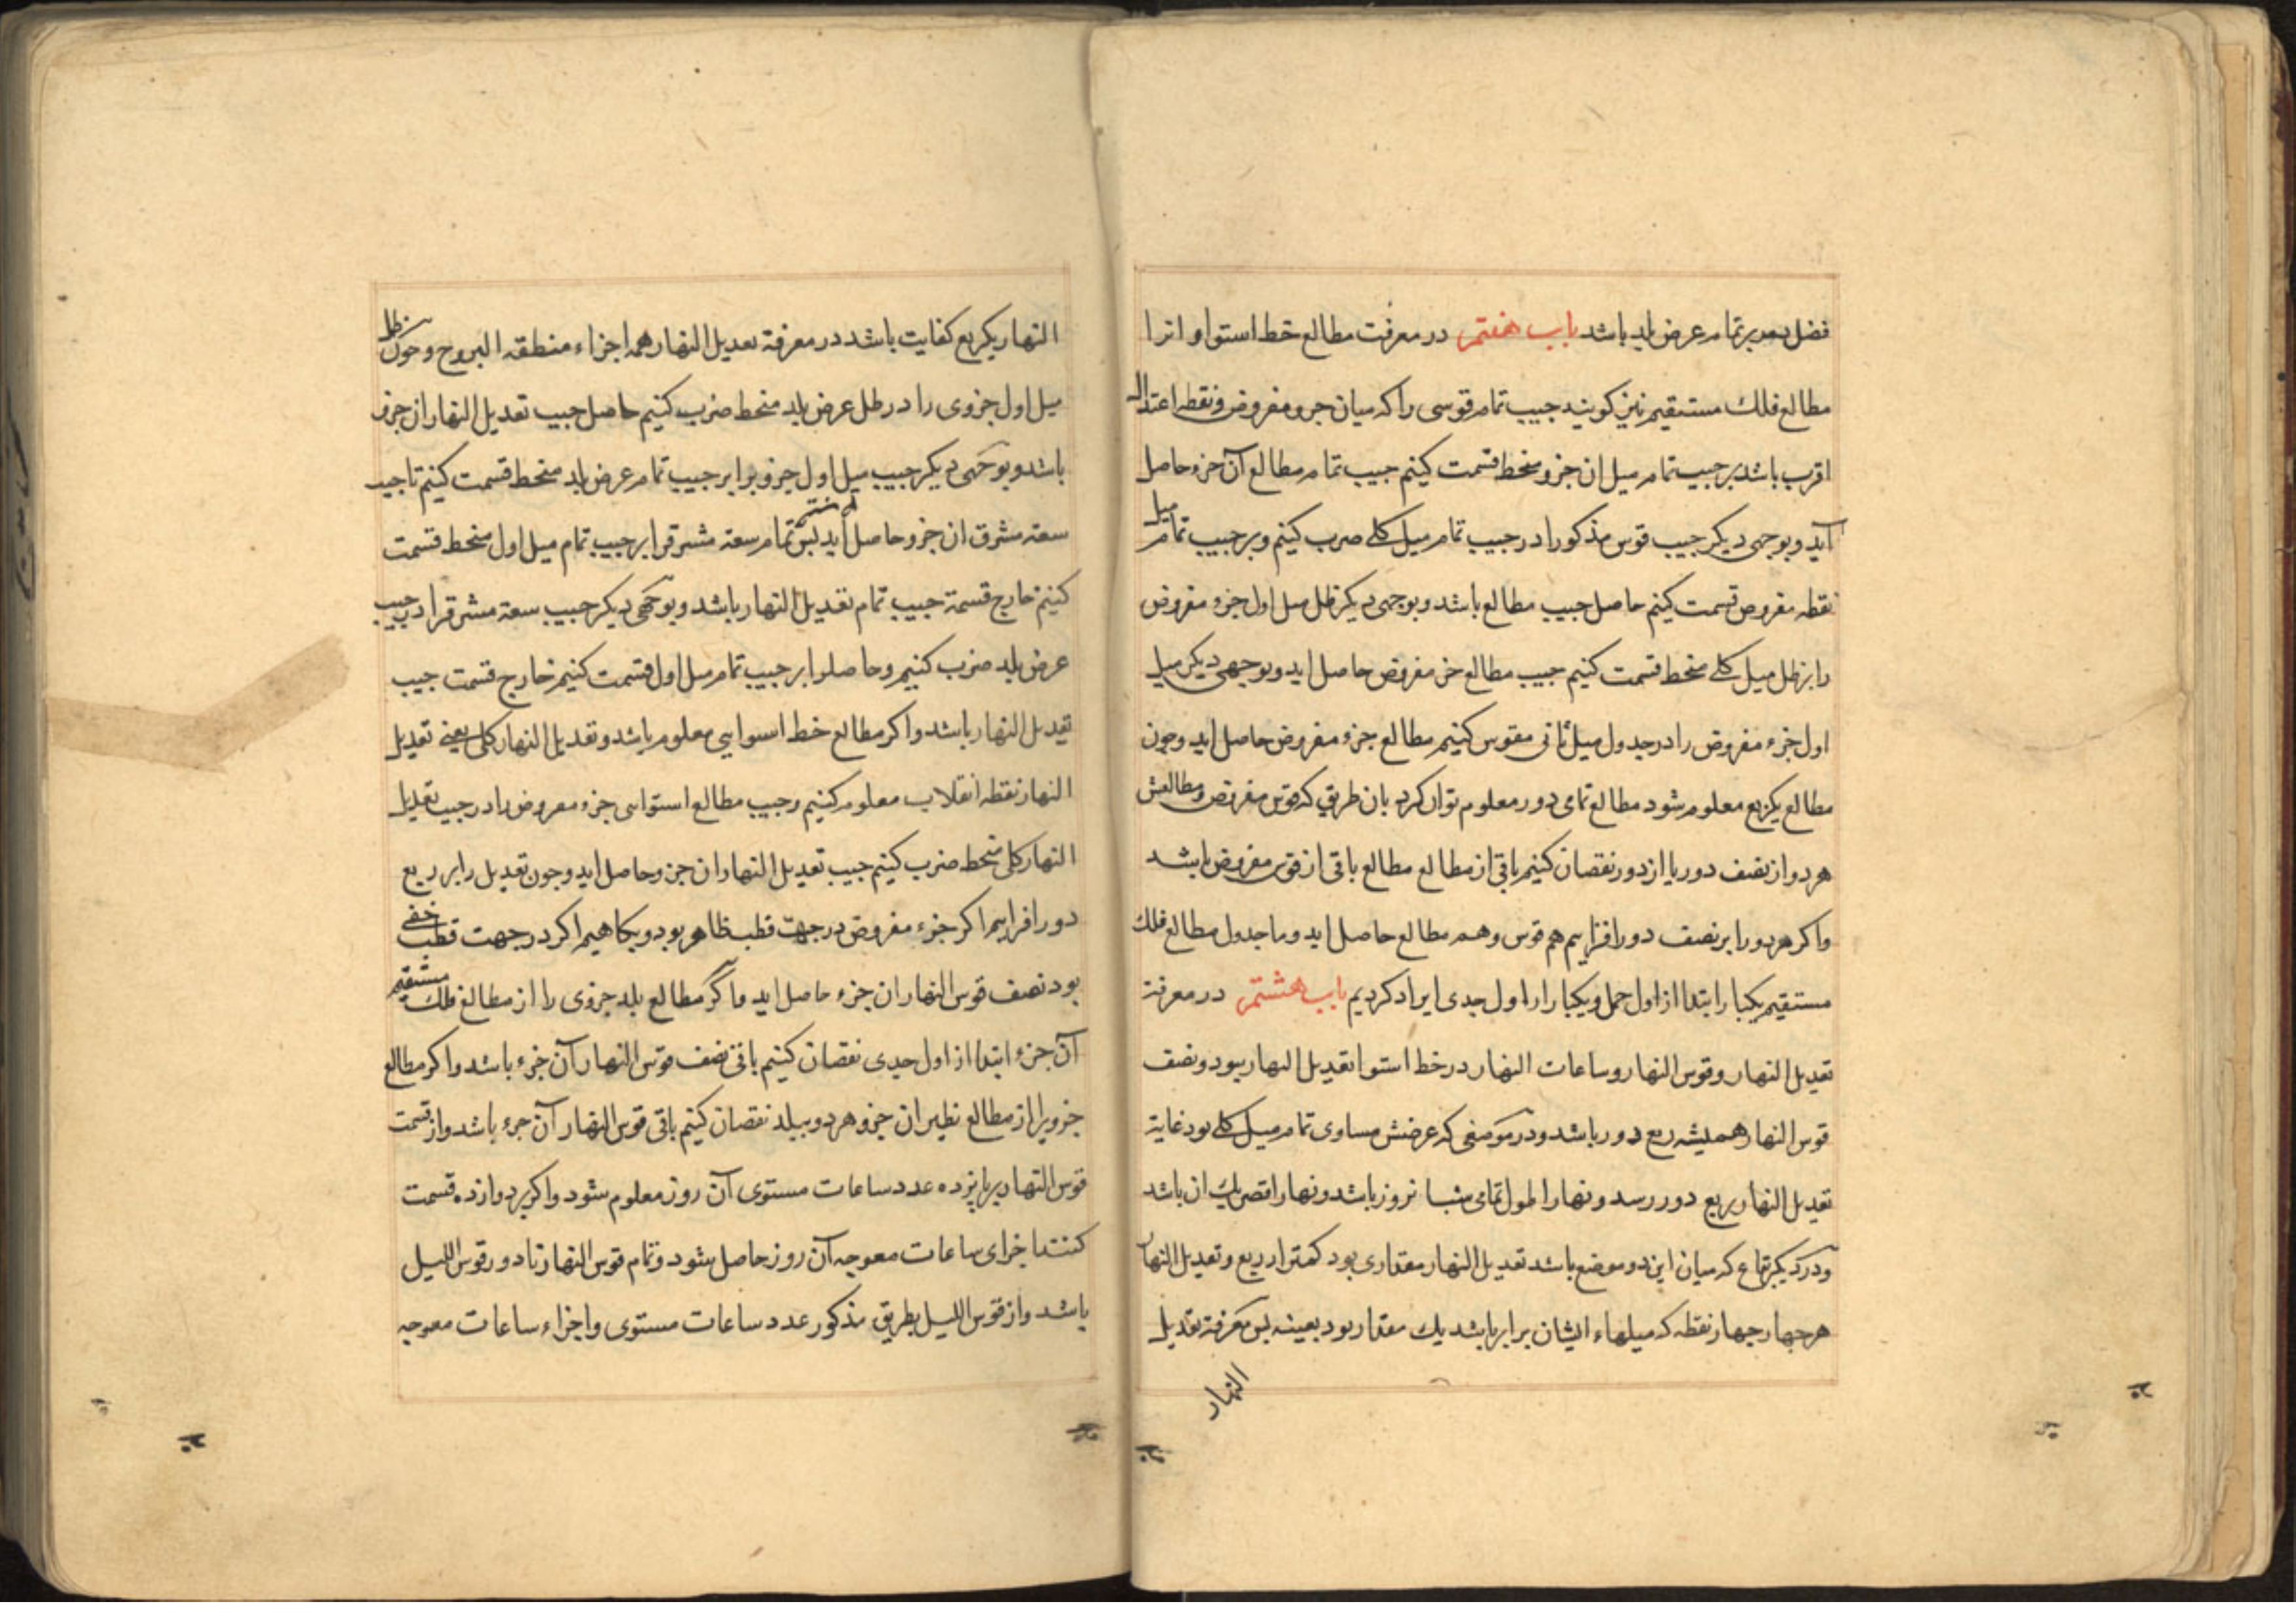 فضل بعد برتمام عرض بلد باشد باب هفتم در معرفت مطالع خط استوا و انرا
مطالع فلك مستقیم نیز کویند جیب تمام قوسی را که میان جزو مفروض و نقطه اعتدال
اقرب باشد بر جیب تمام میل ان جزو منحط قسمت کنیم جیب تمام مطالع آن جزء حاصل
آید و بوجهی دیکر جیب قوس مذکور را در جیب تمام میل کلے ضرب کنیم و بر جیب تمام میل
نقطه مفروض قسمت کنیم حاصل جیب مطالع باشد و بوجهی دیکر ظل میل اول جزء مفروض
را بر ظل میل کلے منحط قسمت کنیم جیب مطالع جزء مفروض حاصل اید و بوجهی دیکر میل
اول جزء مفروض را در جدول میل ثانی مقوس کنیم مطالع جزء مفروض حاصل اید و چون
مطالع یکربع معلوم شود مطالع تمامی دور معلوم توان کرد بان طریق که قوس مفروض و مطالعش
هر دو از نصف دور یا از دور نقصان کنیم باقی از مطالع مطالع باقی از قوس مفروض باشد
و اکر هر دو را بر نصف دور افزاییم هم قوس و هم مطالع حاصل اید و ما جدول مطالع فلك
مستقیم یکبار ابتدا از اول حمل و یکبار از اول جدی ایراد کردیم باب هشتم در معرفة
تعدیل النهار و قوس النهار و ساعات النهار در خط استوا تعدیل النهار نبود و نصف
قوس النهار همیشه ربع دور باشد و در موضعی که عرضش مساوی تمام میل کلے بود غایة
تعدیل النهار بربع دور رسد و نهار اطول تمامی شبانروز باشد و نهار اقصر یك ان باشد
و در دیکر بقاع که میان این دو موضع باشد تعدیل النهار مقداری بود کمتر از ربع و تعدیل النهار
هر جهار جهار نقطه که میلهاء ایشان برابر باشد یك مقدار بود بعینه بس معرفة تعدیل
النهار
النهار یکربع کفایت باشد در معرفة تعدیل النهار همه اجزاء منطقه البروج و چون ظل
میل اول جزوی را در ظل عرض بلد منحط ضرب کنیم حاصل جیب تعدیل النهار ان جزو
باشد و بوجهی دیکر جیب میل اول جزو برا بر جیب تمام عرض بلد منحط قسمت کنیم تا جیب
سعة مشرق ان جزو حاصل اید بس تمام سعة مشرق را بر جیب تمام میل اول منحط قسمت
کنیم خارج قسمة جیب تمام تعدیل النهار باشد و بوجهی دیکر جیب سعة مشرق را در جیب
عرض بلد ضرب کنیم و حاصل را بر جیب تمام میل اول قسمت کنیم خارج قسمت جیب
تعدیل النهار باشد و اکر مطالع خط استوایی معلوم باشد و تعدیل النهار کلی یعنے تعدیل
النهار نقطه انقلاب معلوم کنیم و جیب مطالع استوایی جزء مفروض را در جیب تعدیل
النهار کلی منحط ضرب کنیم جیب تعدیل النهار ان جزو حاصل اید و چون تعدیل را بر ربع
دور افزاییم اکر جزء مفروض در جهت قطب ظاهر بود و بکاهیم اکر در جهت قطب خفی
بود نصف قوس النهار ان جزء حاصل اید و اکر مطالع بلد جزوی را از مطالع فلك مستقیم
آن جزء ابتدا از اول جدی نقصان کنیم باقی نصف قوس النهار آن جزء باشد و اکر مطالع
جزویرا از مطالع نظیر ان جزو هر دو ببلد نقصان کنیم باقی قوس النهار آن جزء باشد و از قسمت
قوس النهار بر پانزده عدد ساعات مستوی آن روز معلوم شود و اکر بر دوازده قسمت
کنند اجزای ساعات معوجه آن روز حاصل شود و تمام قوس النهار تا دور قوس اللیل
باشد و از قوس اللیل بطریق مذکور عدد ساعات مستوی و اجزاء ساعات معوجه